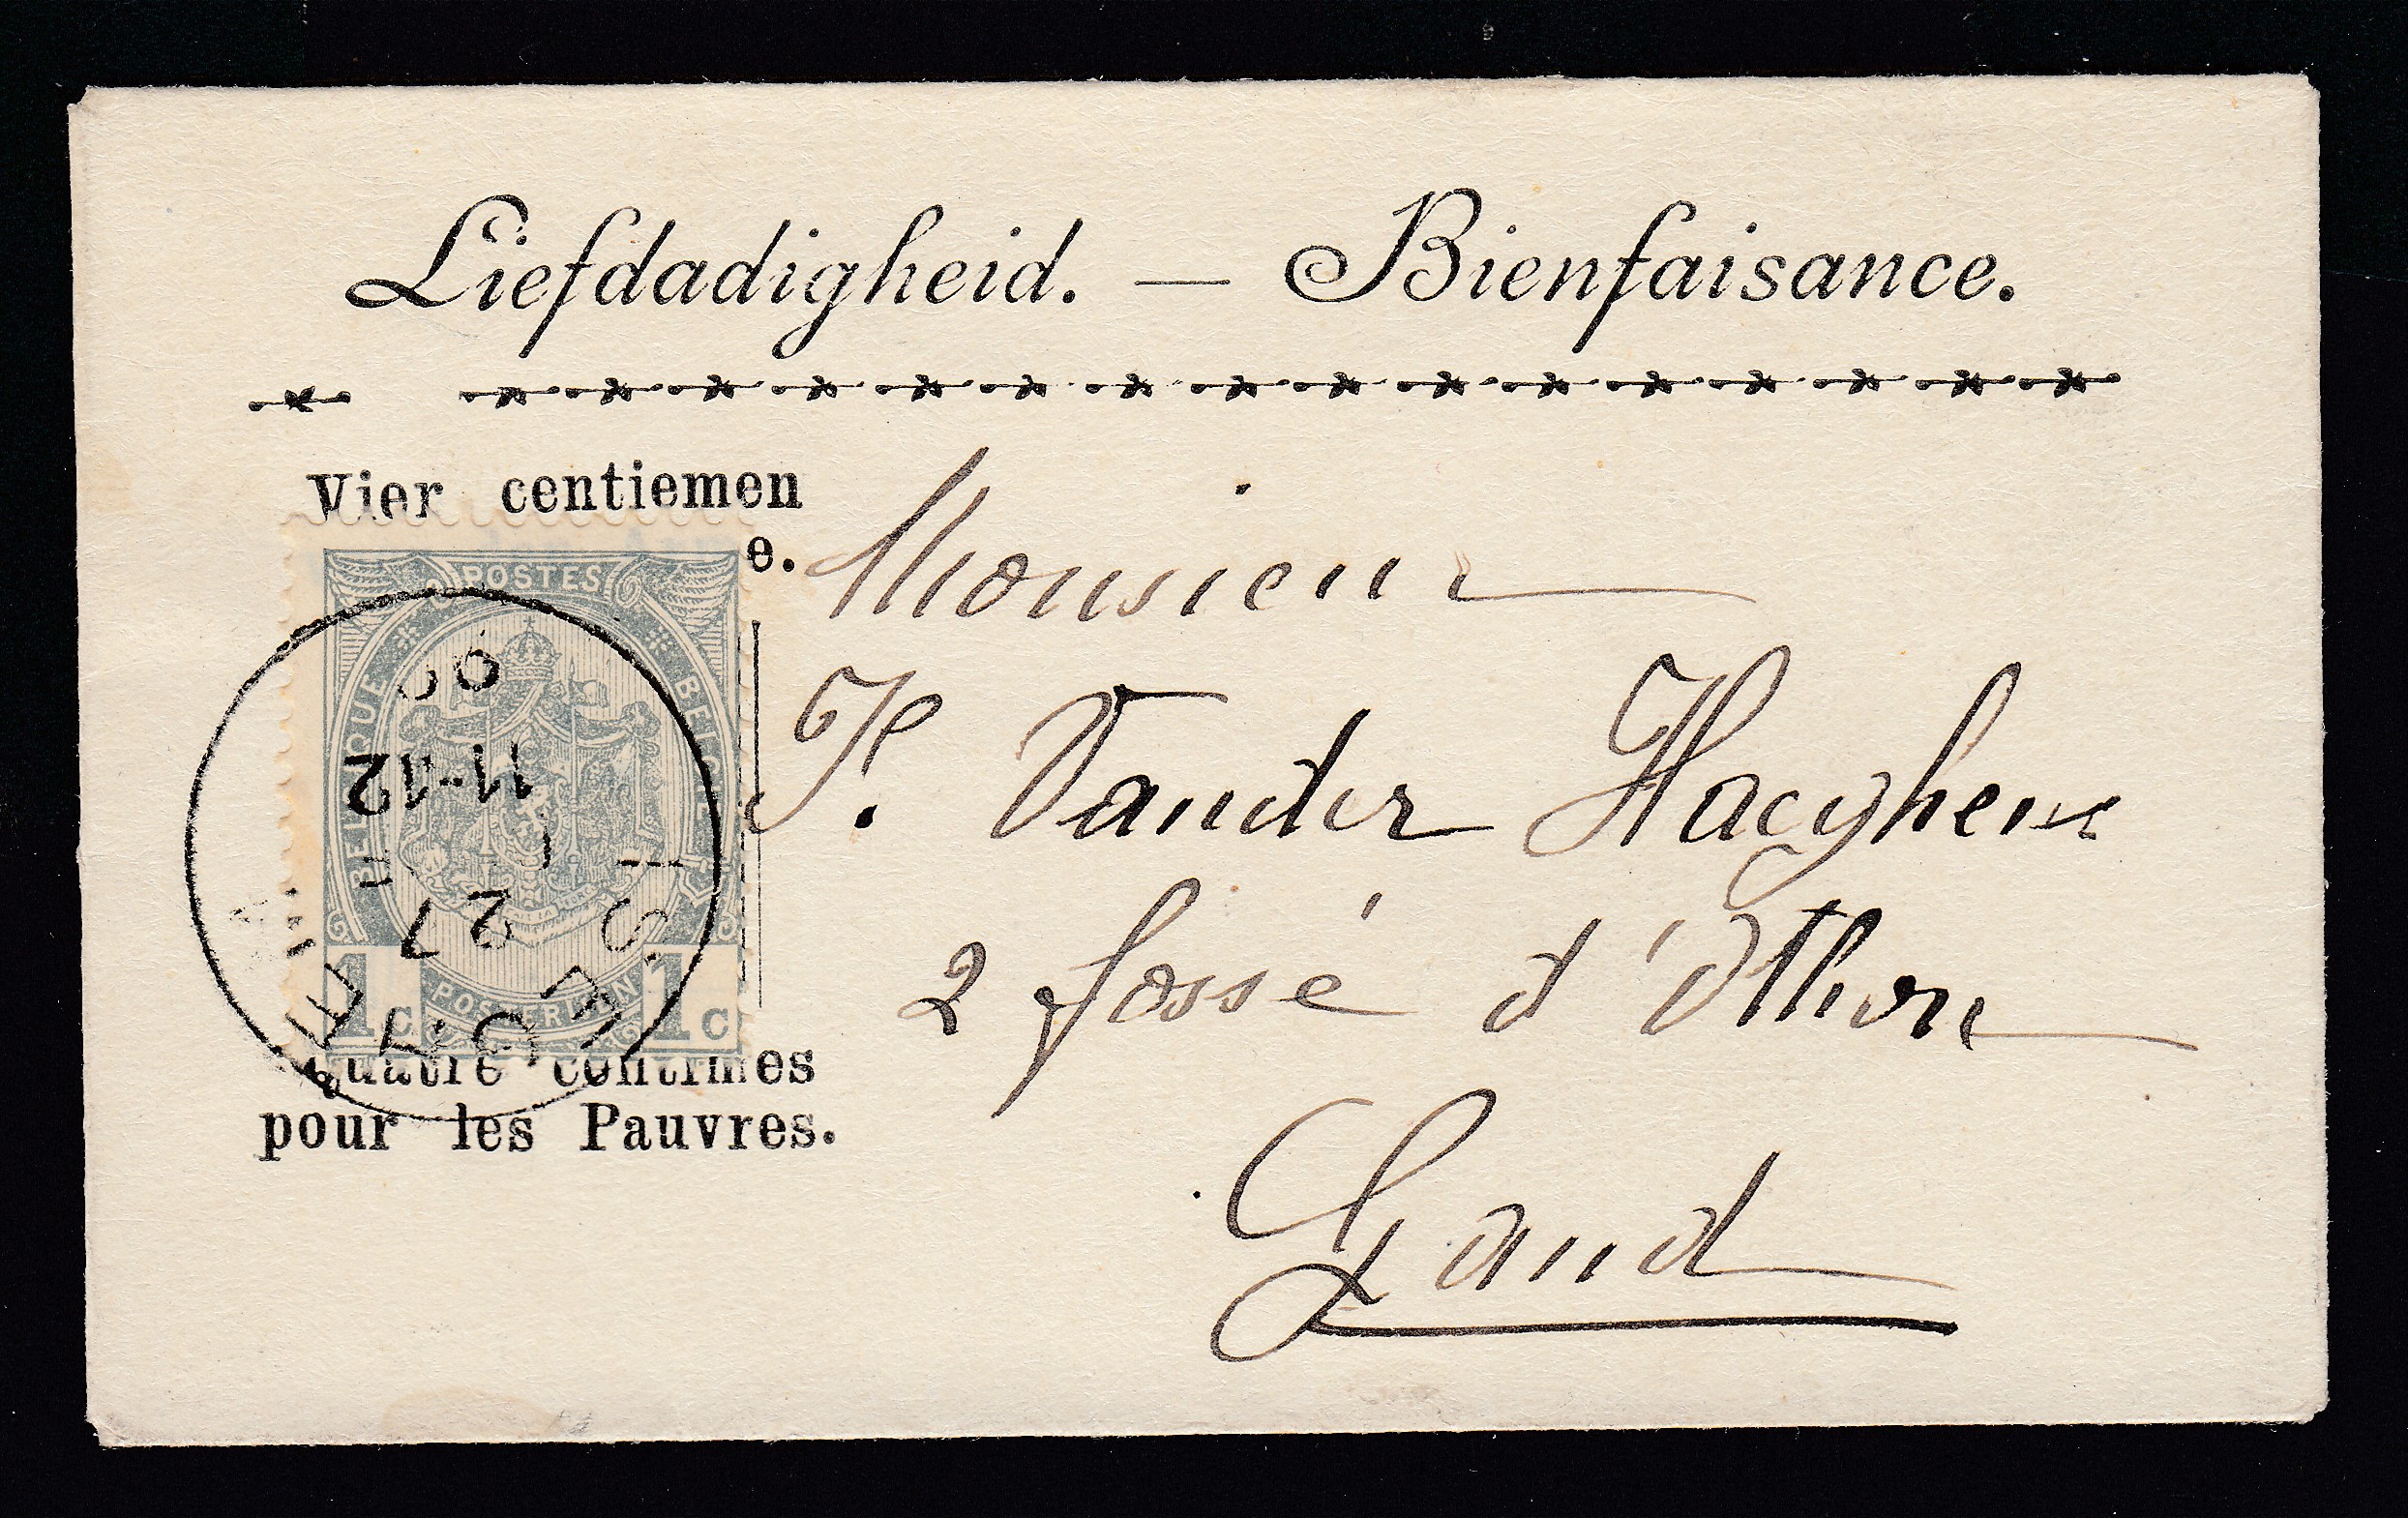 Liefdadigheid. — Bienfaisance.
Vier centiemen
e.
POSTES
BELGIQUE
BELGIË
POSTERIJEN
1c 1c
11-12
27
Quatre centimes
pour les Pauvres.
Monsieur
P. Vander Haeghen
2 fossé d'Othon
Gand